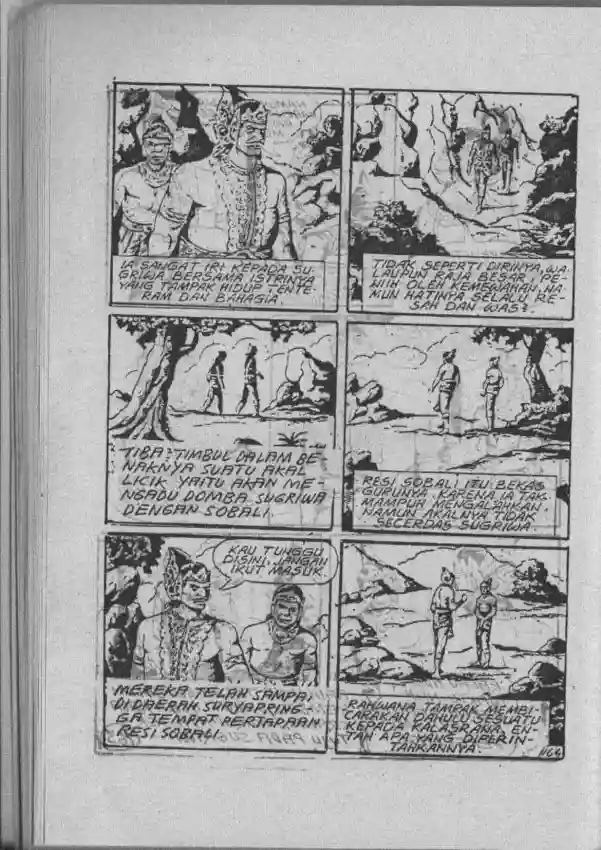 IA SANGAT IRI KEPADA SU-
GRIWA BERSAMA ISTRINYA
YANG TAMPAK HIDUP TENTE-
RAM DAN BAHAGIA.
TIDAK SEPERTI DIRINYA, WA-
LAUPUN RAJA BESAR, PE-
NUH OLEH KEMEWAHAN, NA-
MUN HATINYA SELALU RE-
SAH DAN WAS².
TIBA² TIMBUL DALAM BE-
NAKNYA SUATU AKAL
LICIK YAITU AKAN ME-
NGADU DOMBA SUGRIWA
DENGAN SOBALI.
RESI SOBALI ITU BEKAS
GURUNYA, KARENA IA TAK
MAMPUH MENGALAHKAN,
NAMUN AKALNYA TIDAK
SECERDAS SUGRIWA.
KAU TUNGGU
DISINI, JANGAN
IKUT MASUK.
MEREKA TELAH SAMPAI
DI DAERAH SURYAPRING-
GA TEMPAT PERTAPAAN
RESI SOBALI.
RAHWANA TAMPAK MEMBI-
CARAKAN DAHULU SESUATU
KEPADA KALASRANA, EN-
TAH APA YANG DIPERIN-
TAHKANNYA.